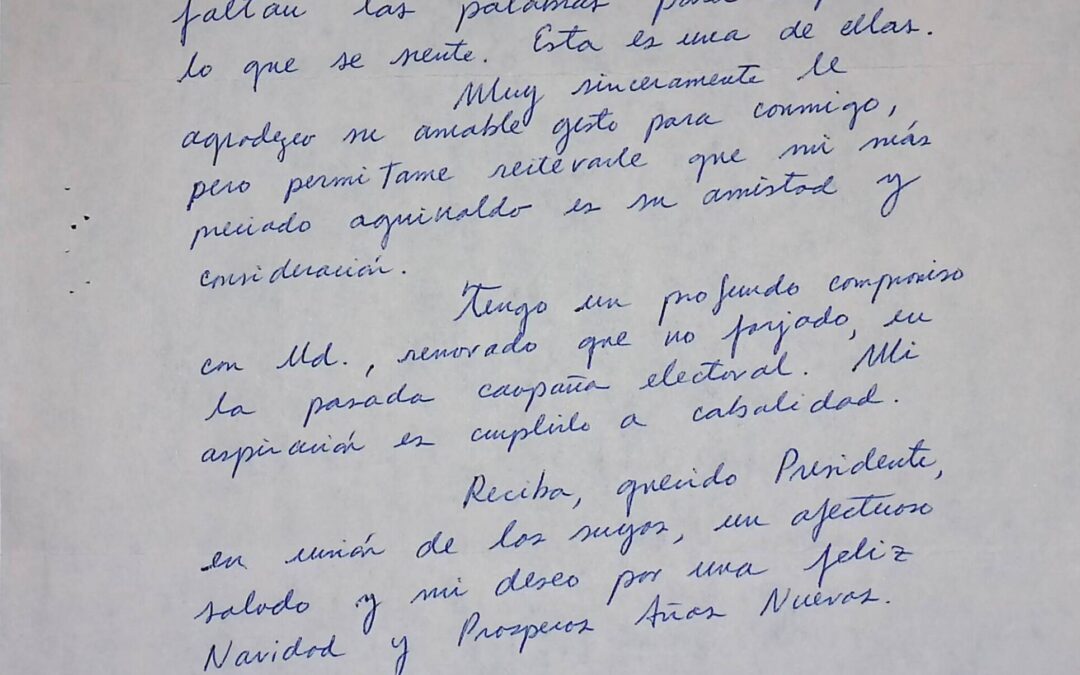 faltan las palabras para
lo que se siente. Esta es una de ellas.
Muy sinceramente le
agradezco su amable gesto para conmigo,
pero permitame reiterarle que mi más
preciado aguinaldo es su amistad y
consideración.
Tengo un profundo compromiso
con Ud., renovado que no forjado, en
la pasada campaña electoral. Mi
aspiración es cumplirlo a cabalidad.
Reciba, querido Presidente,
en unión de los suyos, un afectuoso
saludo y mi deseo por una feliz
Navidad y Prosperos Años Nuevos.